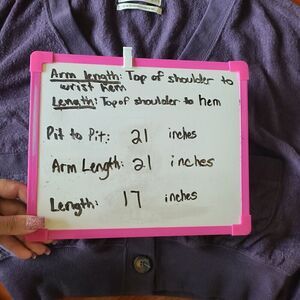 Arm length: Top of shoulder to
wrist hem
Length: Top of shoulder to hem
Pit to Pit: 21 inches
Arm Length: 21 inches
Length: 17 inches